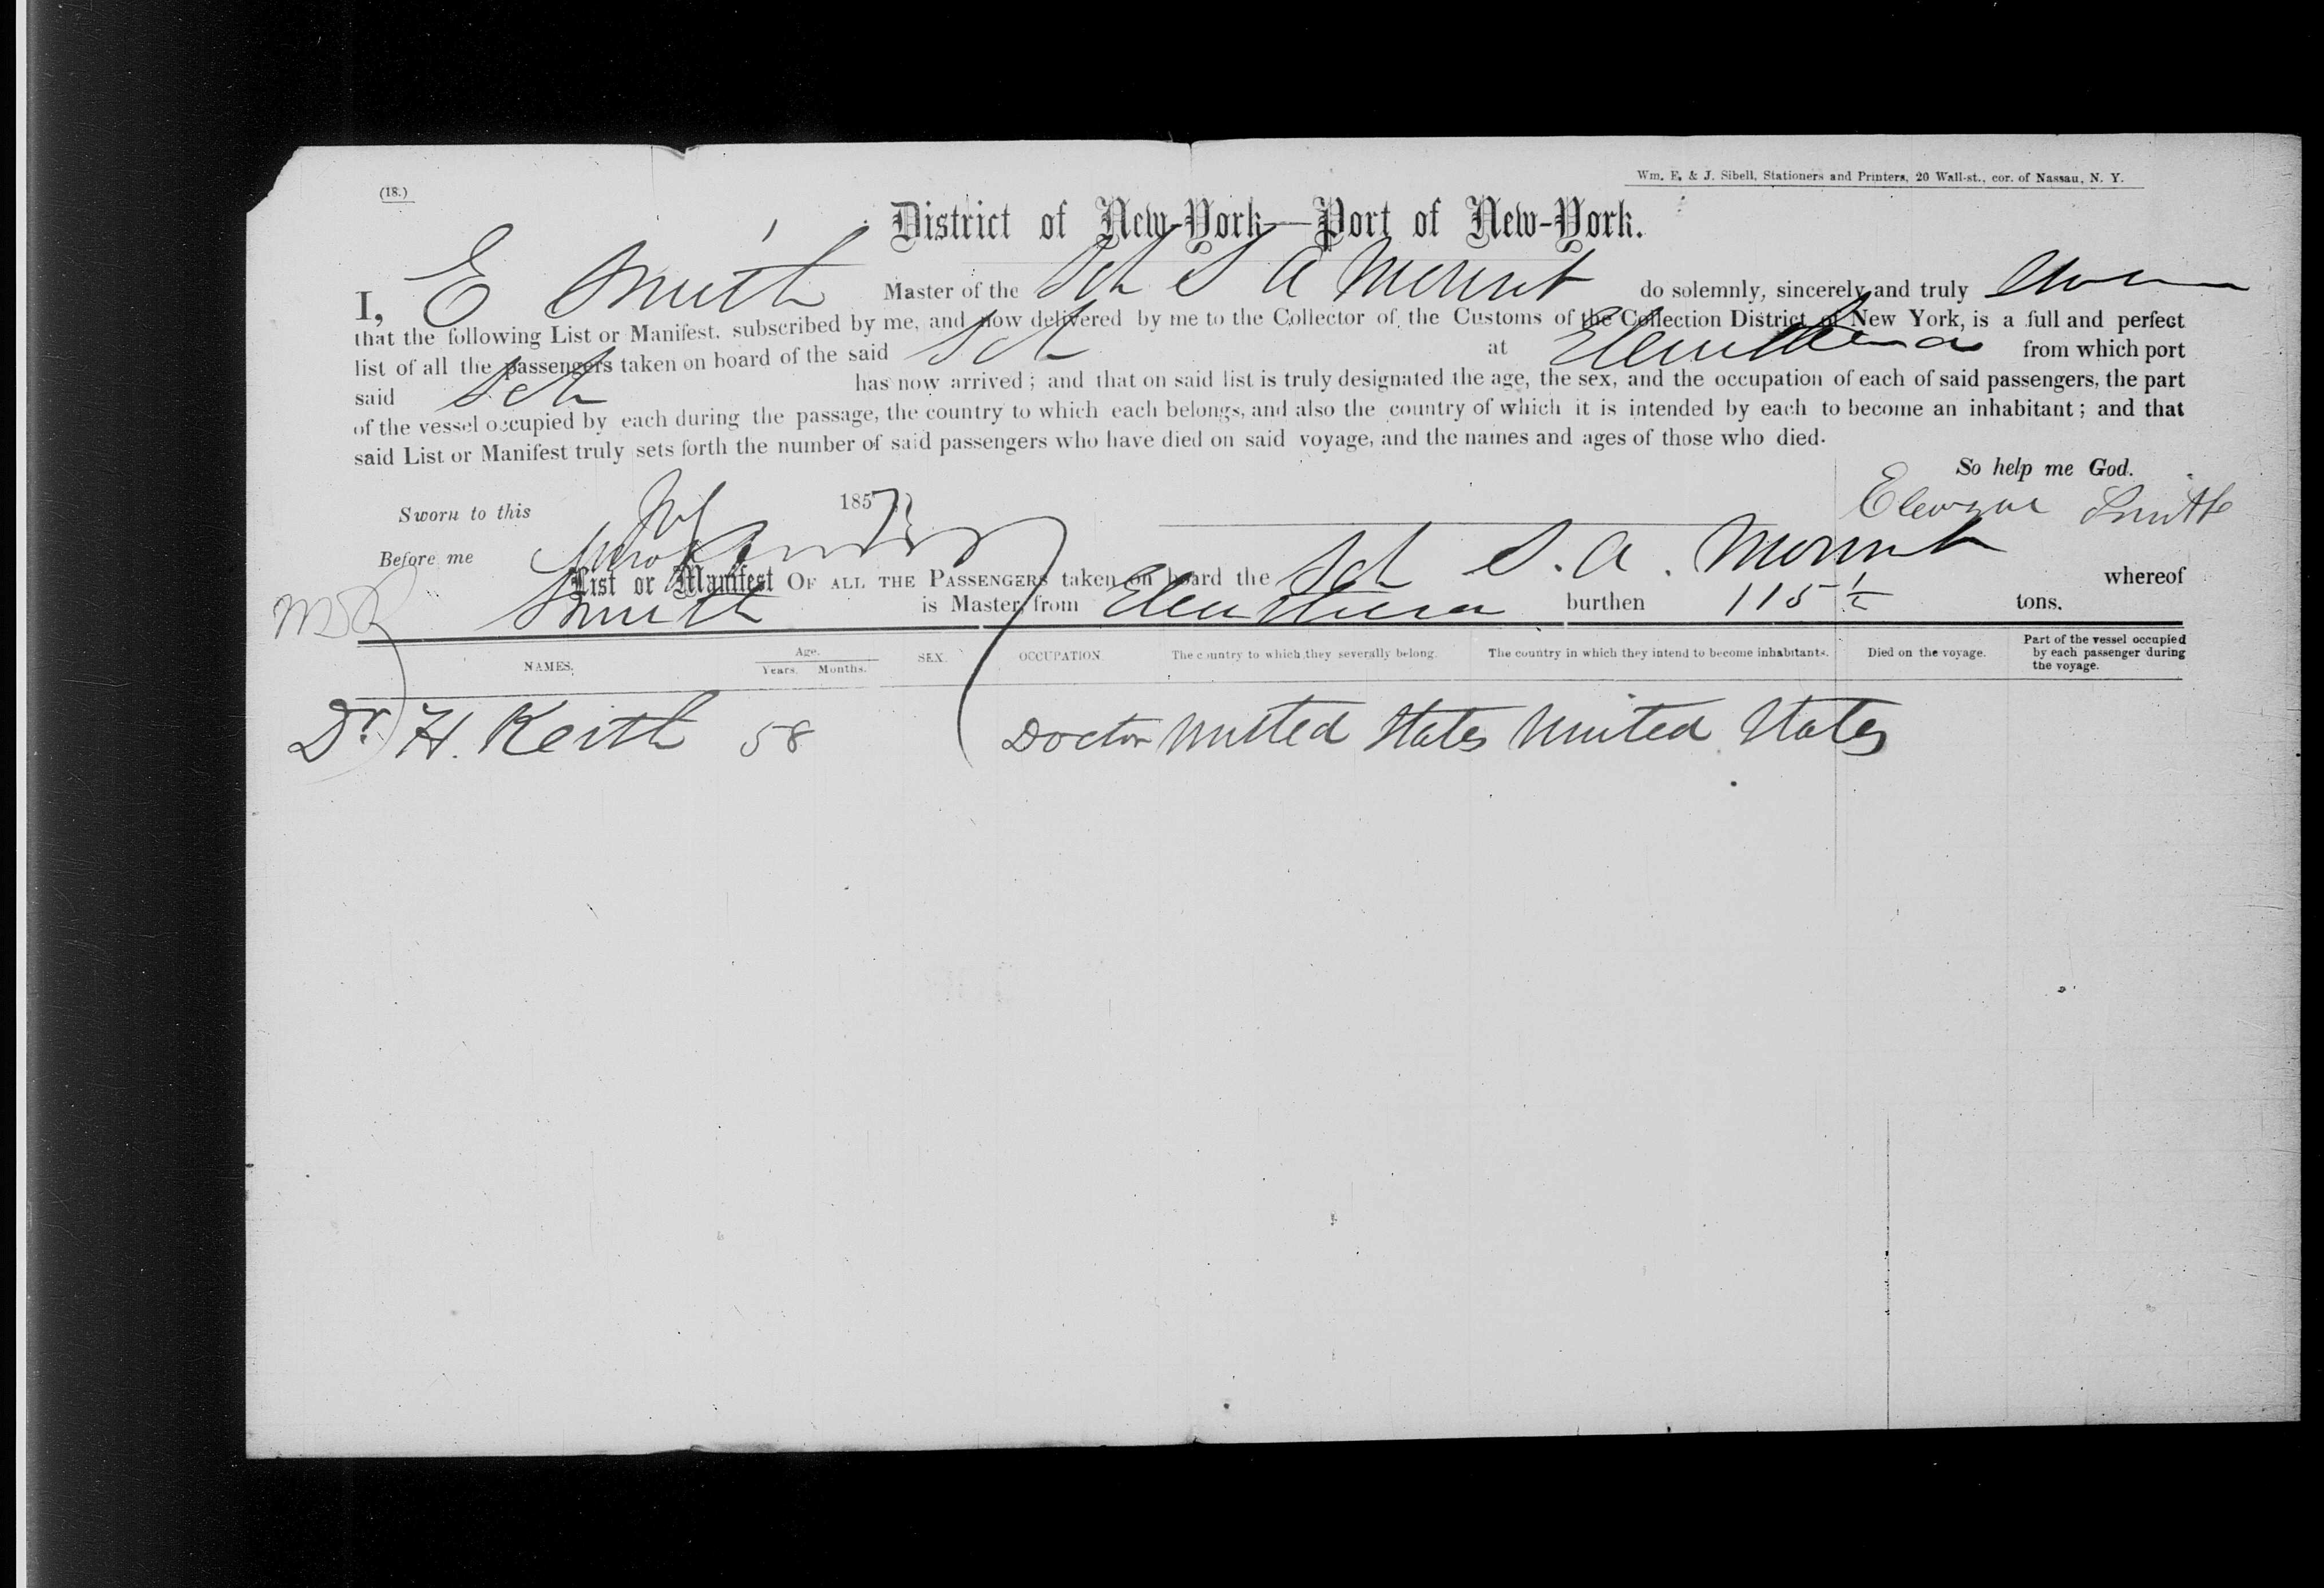 (18.)
Wm. E. & J. Sibell, Stationers and Printers, 20 Wall-st., cor. of Nassau, N. Y.
District of New-York—Port of New-York.
I, E Smith Master of the Sch S A Mount do solemnly, sincerely and truly
that the following List or Manifest. subscribed by me, and now delivered by me to the Collector of the Customs of the Collection District of New York, is a full and perfect
list of all the passengers taken on board of the said Sch at Eleuthera from which port
said Sch has now arrived; and that on said list is truly designated the age, the sex, and the occupation of each of said passengers, the part
of the vessel occupied by each during the passage, the country to which each belongs, and also the country of which it is intended by each to become an inhabitant; and that
said List or Manifest truly sets forth the number of said passengers who have died on said voyage, and the names and ages of those who died.
So help me God.
Sworn to this 1857 Smith
Before me
List or Manifest OF ALL THE PASSENGERS taken on board the Sch S. A. Mount whereof
Smith is Master, from Eleuthera burthen 115 1/2 tons.
NAMES. Age. Years. Months. SEX. OCCUPATION. The country to which they severally belong. The country in which they intend to become inhabitants. Died on the voyage. Part of the vessel occupied by each passenger during the voyage.
Dr. H. Keith 58 Doctor United States United States